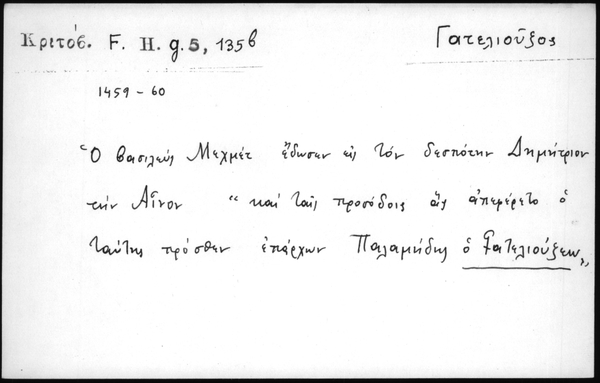 Κριτόβ. F. H. g. 5, 135b
Γατελιοῦξος
1459 - 60
Ὁ βασιλεύς Μεχμέτ ἔδωσεν εἰς τόν δεσπότην Δημήτριον
τήν Αἶνον "καί ταῖς προσόδοις ἅς ἀπεφέρετο ὁ
ταύτης πρόσθεν ἐπάρχων Παλαμήδης ὁ Γατελιούξεω"